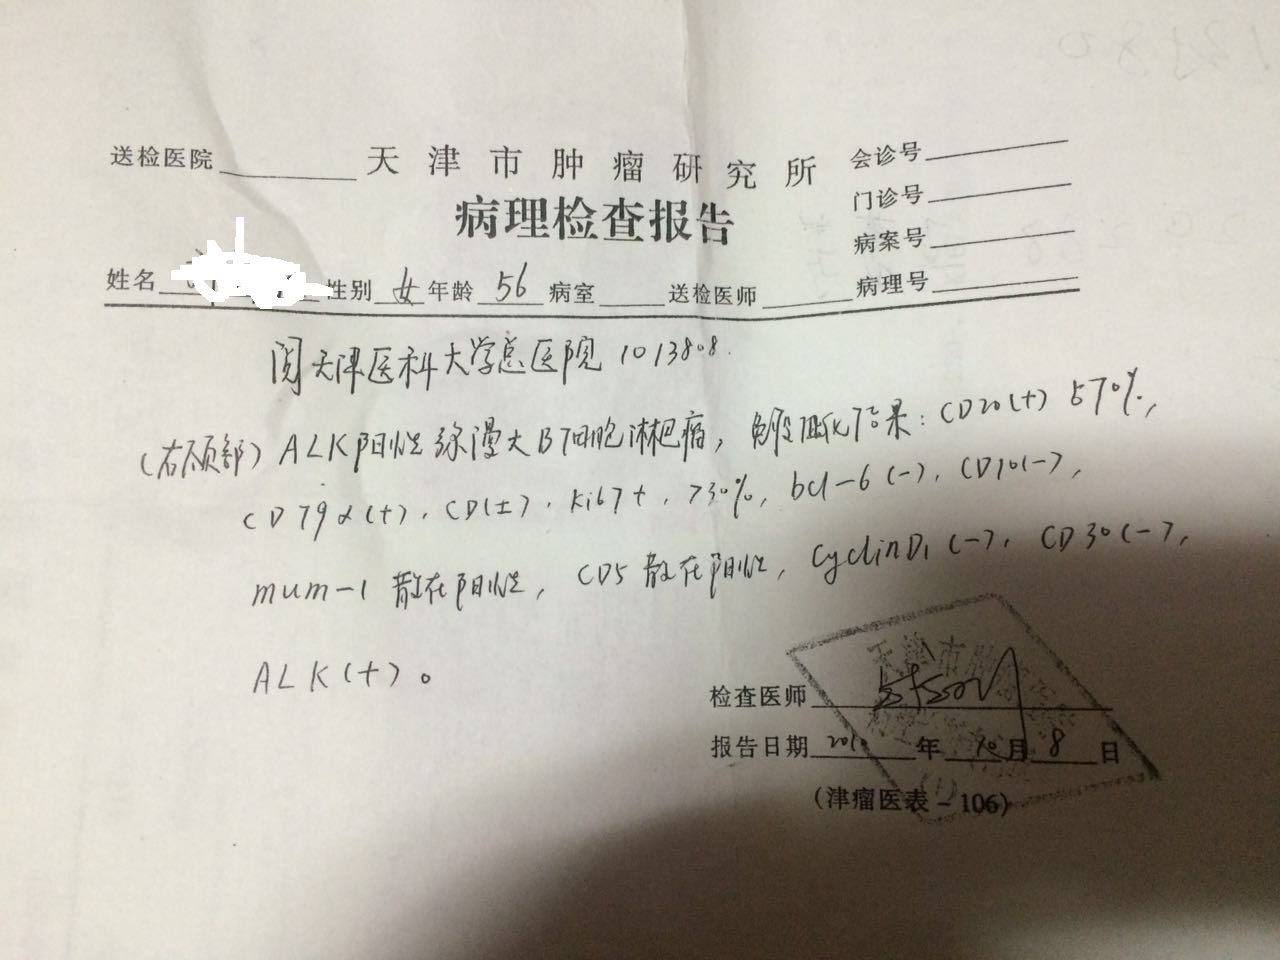 送检医院
天津市肿瘤研究所
会诊号
门诊号
病案号
病理号
病理检查报告
姓名 性别 女 年龄 56 病室 送检医师
阅天津医科大学总医院 1013808.
(右颈部) ALK阳性弥漫大B细胞淋巴瘤, 免疫组化结果: CD20(+) 570%,
CD79α(+), CD(±), Ki67+, >30%, bcl-6(-), CD10(-),
mum-1 散在阳性, CD5 散在阳性, CyclinD1(-), CD30(-),
ALK(+)。
检查医师
报告日期 年 10 月 8 日
(津瘤医表-106)